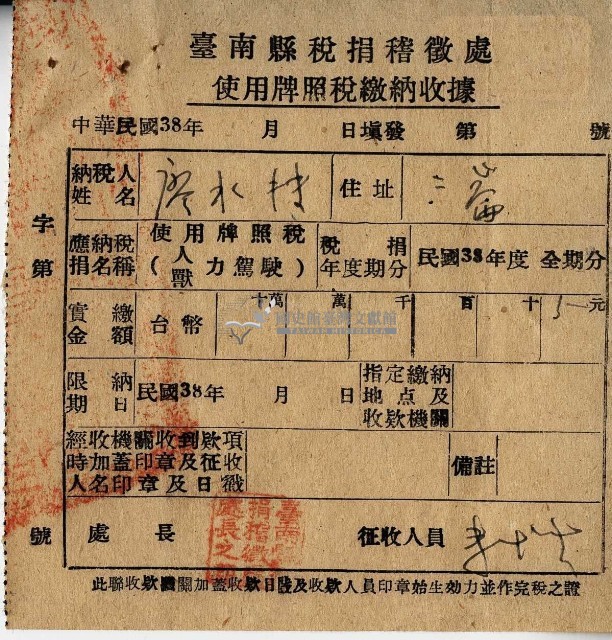 臺南縣稅捐稽徵處
使用牌照稅繳納收據
中華民國38年 月 日填發 第 號
字第 號
納稅人姓名 廖水持 住址 三崙
應納稅捐名稱 使用牌照稅(人獸力駕駛) 稅捐年度期分 民國38年度 全期分
實繳金額 台幣 十萬 萬 千 百 十 5 元
國史館臺灣文獻館
TAIWAN HISTORICA
限納期日 民國38年 月 日 指定繳納地点及收欵機關
經收機關收到欵項時加蓋印章及征收人名印章及日戳 備註
處長 征收人員
臺南縣稅捐稽徵處長之章
此聯收欵機關加蓋收欵日戳及收欵人員印章始生効力並作完稅之證